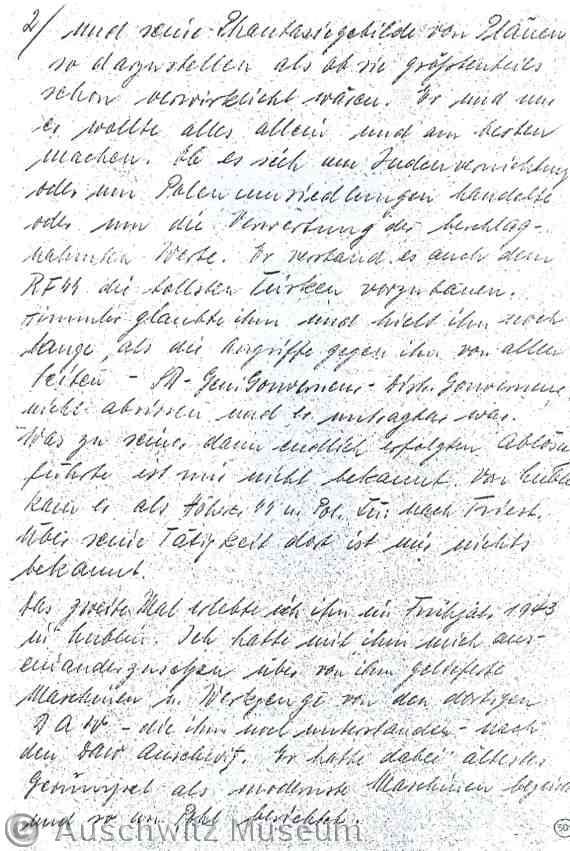 2/ und seine Phantasiegebilde von Plänen
so darzustellen als ob sie größtenteils
schon verwirklicht wären. Er und nur
er wollte alles allein und am besten
machen. Ob es sich um Judenvernichtung
oder um Polenumsiedlungen handelte
oder um die Verwertung der beschlag-
nahmten Werte. Er verstand es auch dem
RFSS die tollsten Türken vorzubauen.
Himmler glaubte ihm und hielt ihn noch
lange, als die Angriffe gegen ihn von allen
Seiten - Gen. Gouverneur - Distr. Gouverneure
nicht abrissen und er untragbar war.
Was zu seiner dann endlich erfolgten Ablösung
führte ist mir nicht bekannt. Von Lublin
kam er als Höh. SS u. Pol. Fü. nach Triest.
Über seine Tätigkeit dort ist mir nichts
bekannt.
Das zweite Mal erlebte ich ihn im Frühjahr 1943
in Lublin. Ich hatte mit ihm mich aus-
einanderzusetzen über von ihm gelieferte
Maschinen u. Werkzeuge von den dortigen
DAW - die ihm noch unterstanden - nach
den DAW Auschwitz. Er hatte dabei ältestes
Gerümpel als modernste Maschinen
und so an Pohl berichtet.
© Auschwitz Museum
50